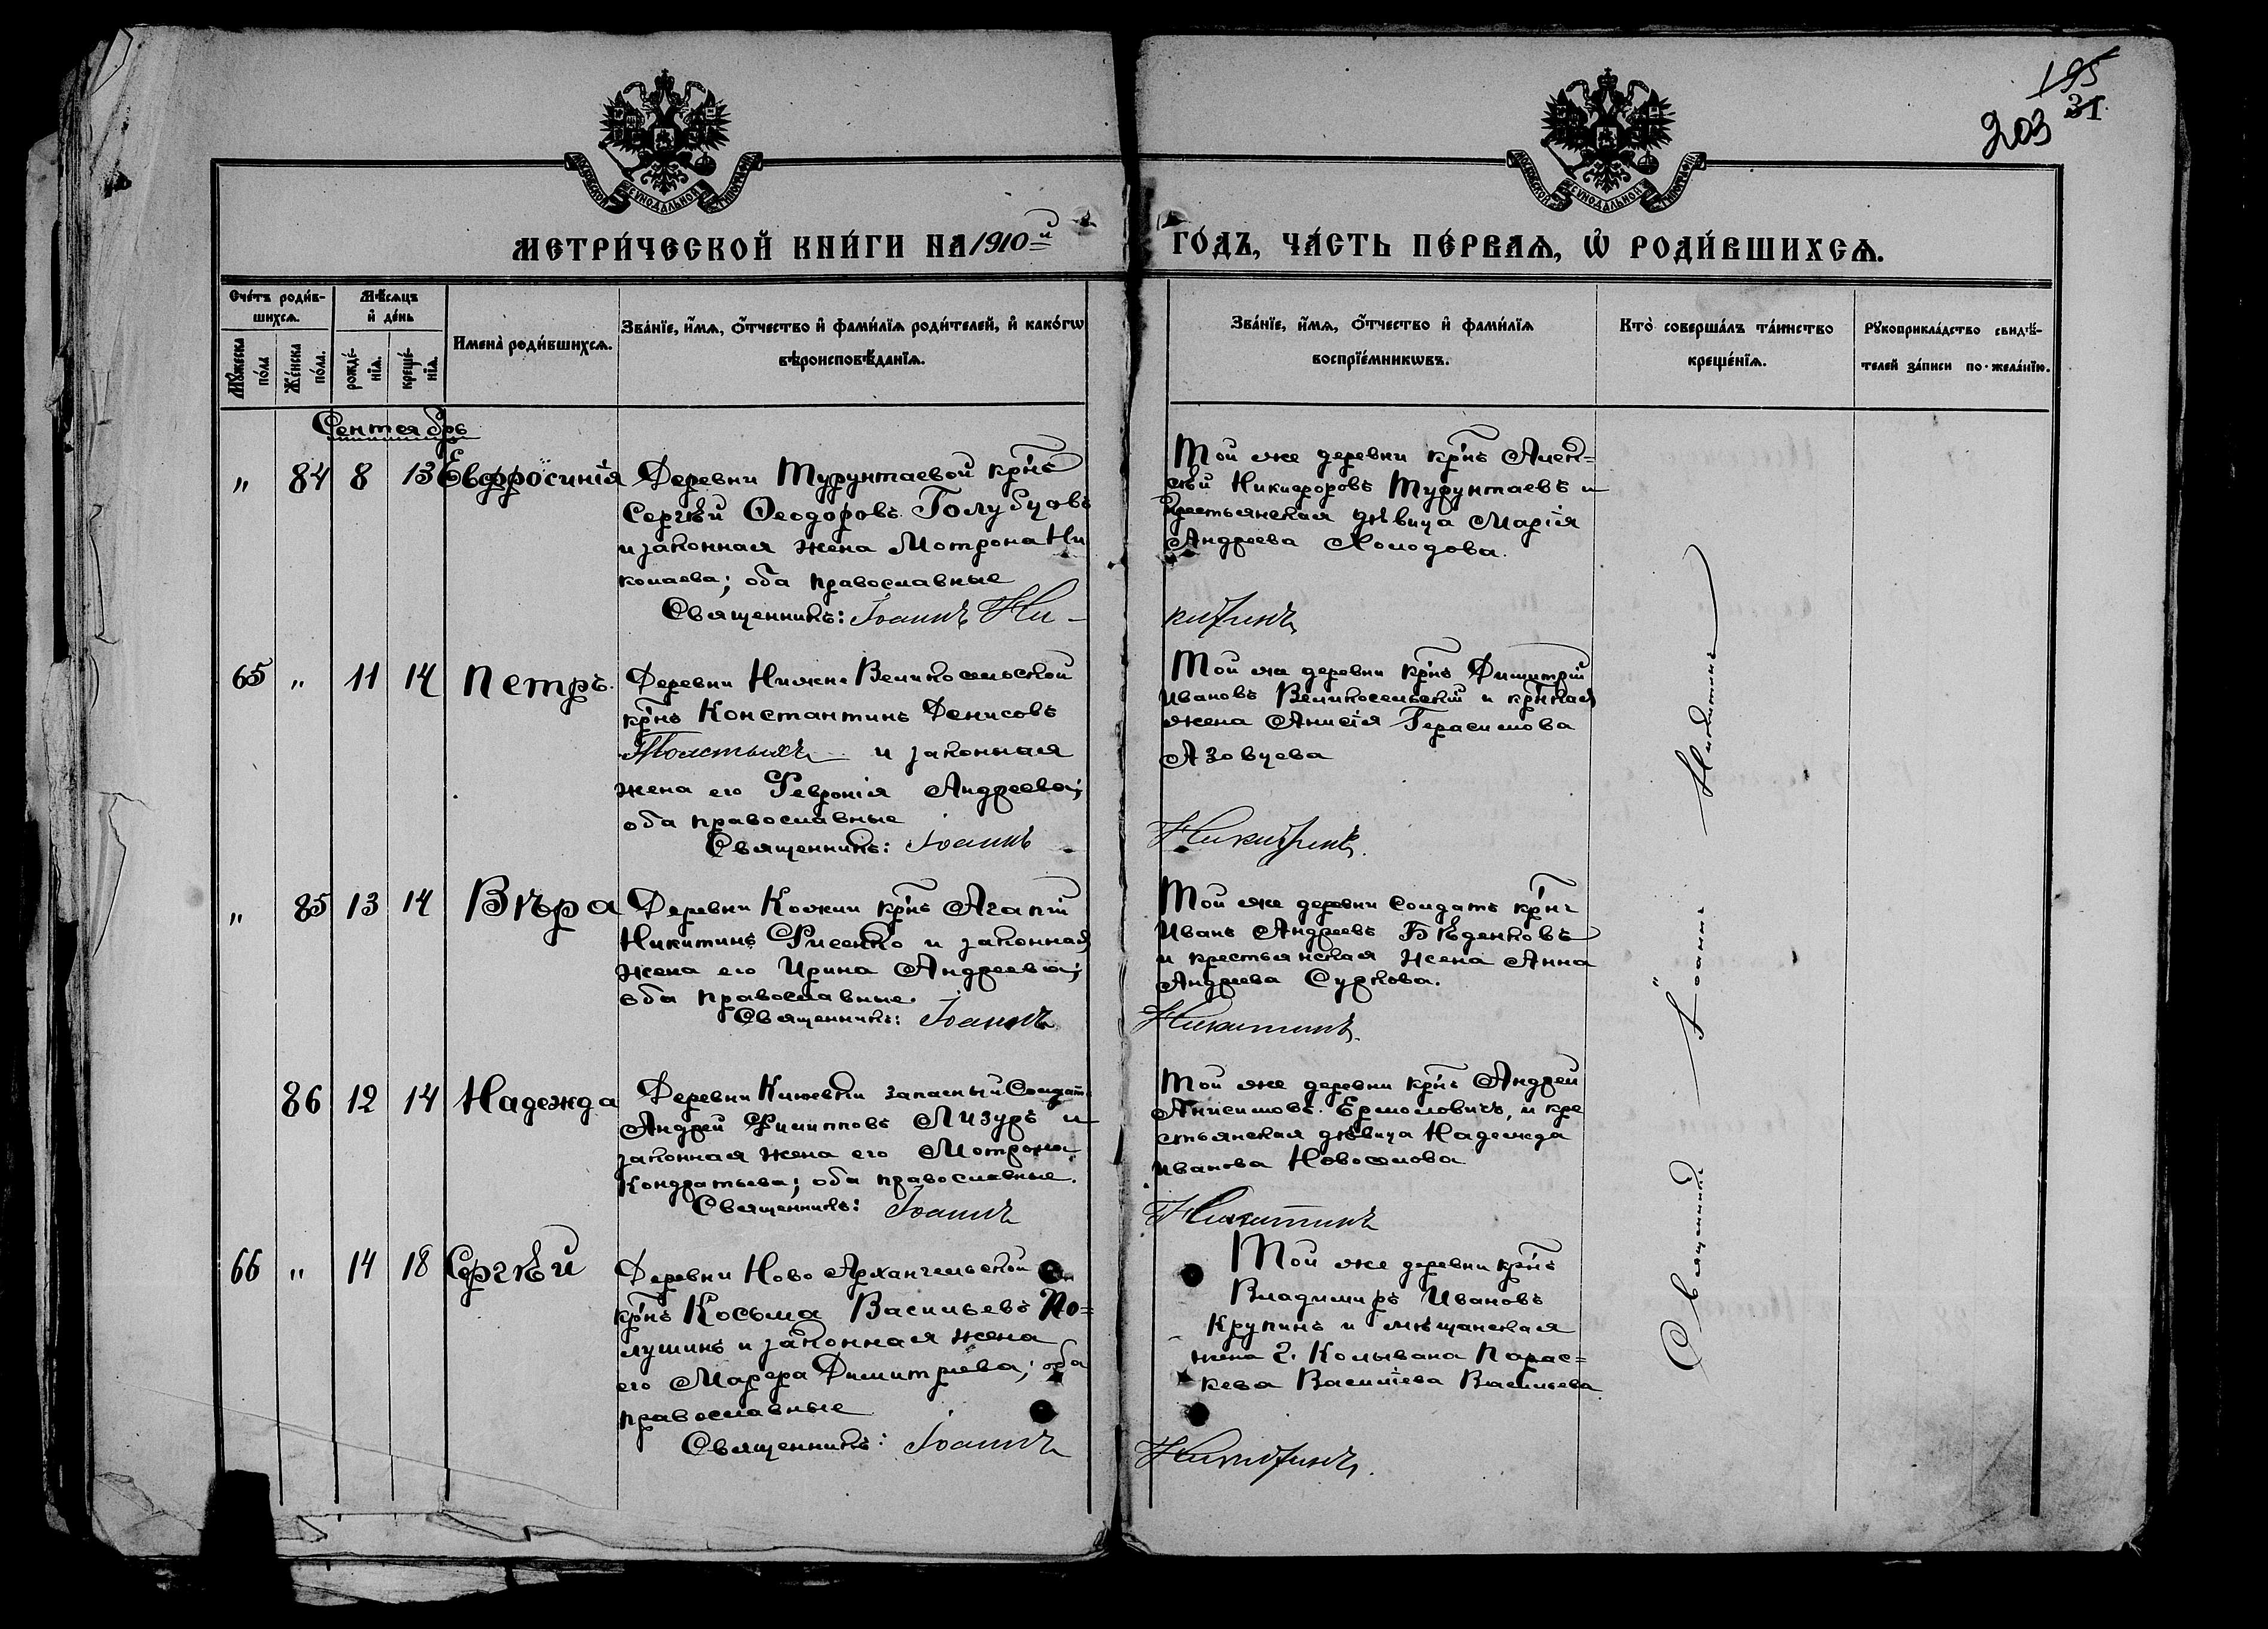 195
203 31
МОСКОВСКОЙ СѴНОДАЛЬНОЙ ТИПОГРАФІИ
МОСКОВСКОЙ СѴНОДАЛЬНОЙ ТИПОГРАФІИ
МЕТРИ́ЧЕСКОЙ КНИ́ГИ НА 1910-й ГО́ДЪ, ЧА́СТЬ ПЕ́РВАѦ, Ѡ҆ РОДИ́ВШИХСѦ.
Сче́тъ роди́в-
шихсѧ.
Мꙋ́жеска по́ла
Же́нска по́ла.
Мѣ́сѧцъ
и҆ де́нь
рожде́-
нїѧ.
креще́-
нїѧ.
Имена̀ роди́вшихсѧ.
Зва́нїе, и҆́мѧ, ѻ҆́тчество и҆ фами́лїѧ роди́телей, и҆ како́гѡ
вѣроисповѣ́данїѧ.
Зва́нїе, и҆́мѧ, ѻ҆́тчество и҆ фами́лїѧ
воспрїе́мникѡвъ.
Кто̀ соверша́лъ та́инство
креще́нїѧ.
Рꙋкоприкла́дство свидѣ́-
телей за́писи по жела́нїю.
Сентябрь
" 84 8 13 Евфросинія
Деревни Турунтаевой кр-нъ
Сергѣй Ѳеодоровъ Голубцовъ
и законная жена Мотрона Ни
колаева; оба православные
Священникъ: Іоаннъ Ни-
Той же деревни кр-нъ Алек-
сѣй Никифоровъ Турунтаевъ и
крестьянская дѣвица Марія
Андреева Холодова.
китинъ
65 " 11 14 Петръ.
Деревни Нижне Великосельской
кр-нъ Константинъ Денисовъ
Толстыхъ и законная
жена его Февронія Андреева;
оба православные
Священникъ: Іоаннъ
Той же деревни кр-нъ Димитрій
Ивановъ Великосельскій и кр-нская
жена Анисія Герасимова
Азовцева
Никитинъ.
" 85 13 14 Вѣра
Деревни Кожии кр-нъ Агапій
Никитинъ Фисенко и законная
жена его Ирина Андреева;
оба православные.
Священникъ: Іоаннъ
Той же деревни солдатъ кр-нъ
Иванъ Андреевъ Бѣденковъ
и крестьянская жена Анна
Андреева Суркова.
Никитинъ.
86 12 14 Надежда
Деревни запасный солдатъ
Андрей Филипповъ Лизуръ и
законная жена его Мотрона
Кондратьева; оба православные.
Священникъ: Іоаннъ
Той же деревни кр-нъ Андрей
Анисимовъ Ермоловичъ, и кре
стьянская дѣвица Надежда
Иванова Новоселова
Никитинъ
66 " 14 18 Сергѣй
Деревни Ново Архангельской
кр-нъ Косьма Васильевъ По-
лушинъ и законная жена
его Марѳа Димитріева; оба
православные
Священникъ: Іоаннъ
Той же деревни кр-нъ
Владимиръ Ивановъ
Крупинъ и мѣщанская
жена г. Колывана Парас-
кева Васильева Васильева
Никитинъ.
Священникъ Іоаннъ Никитинъ